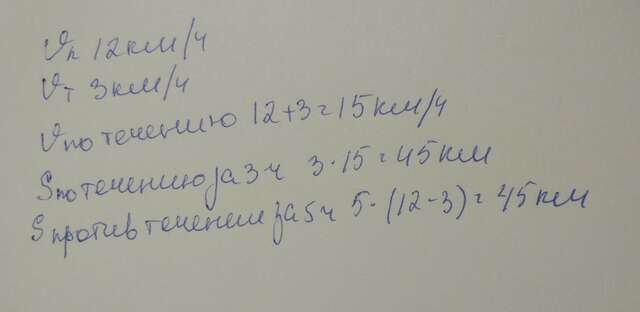 Vп 12км/ч
Vт 3км/ч
Vпо течению 12+3=15км/ч
Sпо течению за 3ч 3·15=45км
Sпротив течении за 5ч 5·(12-3)=45км